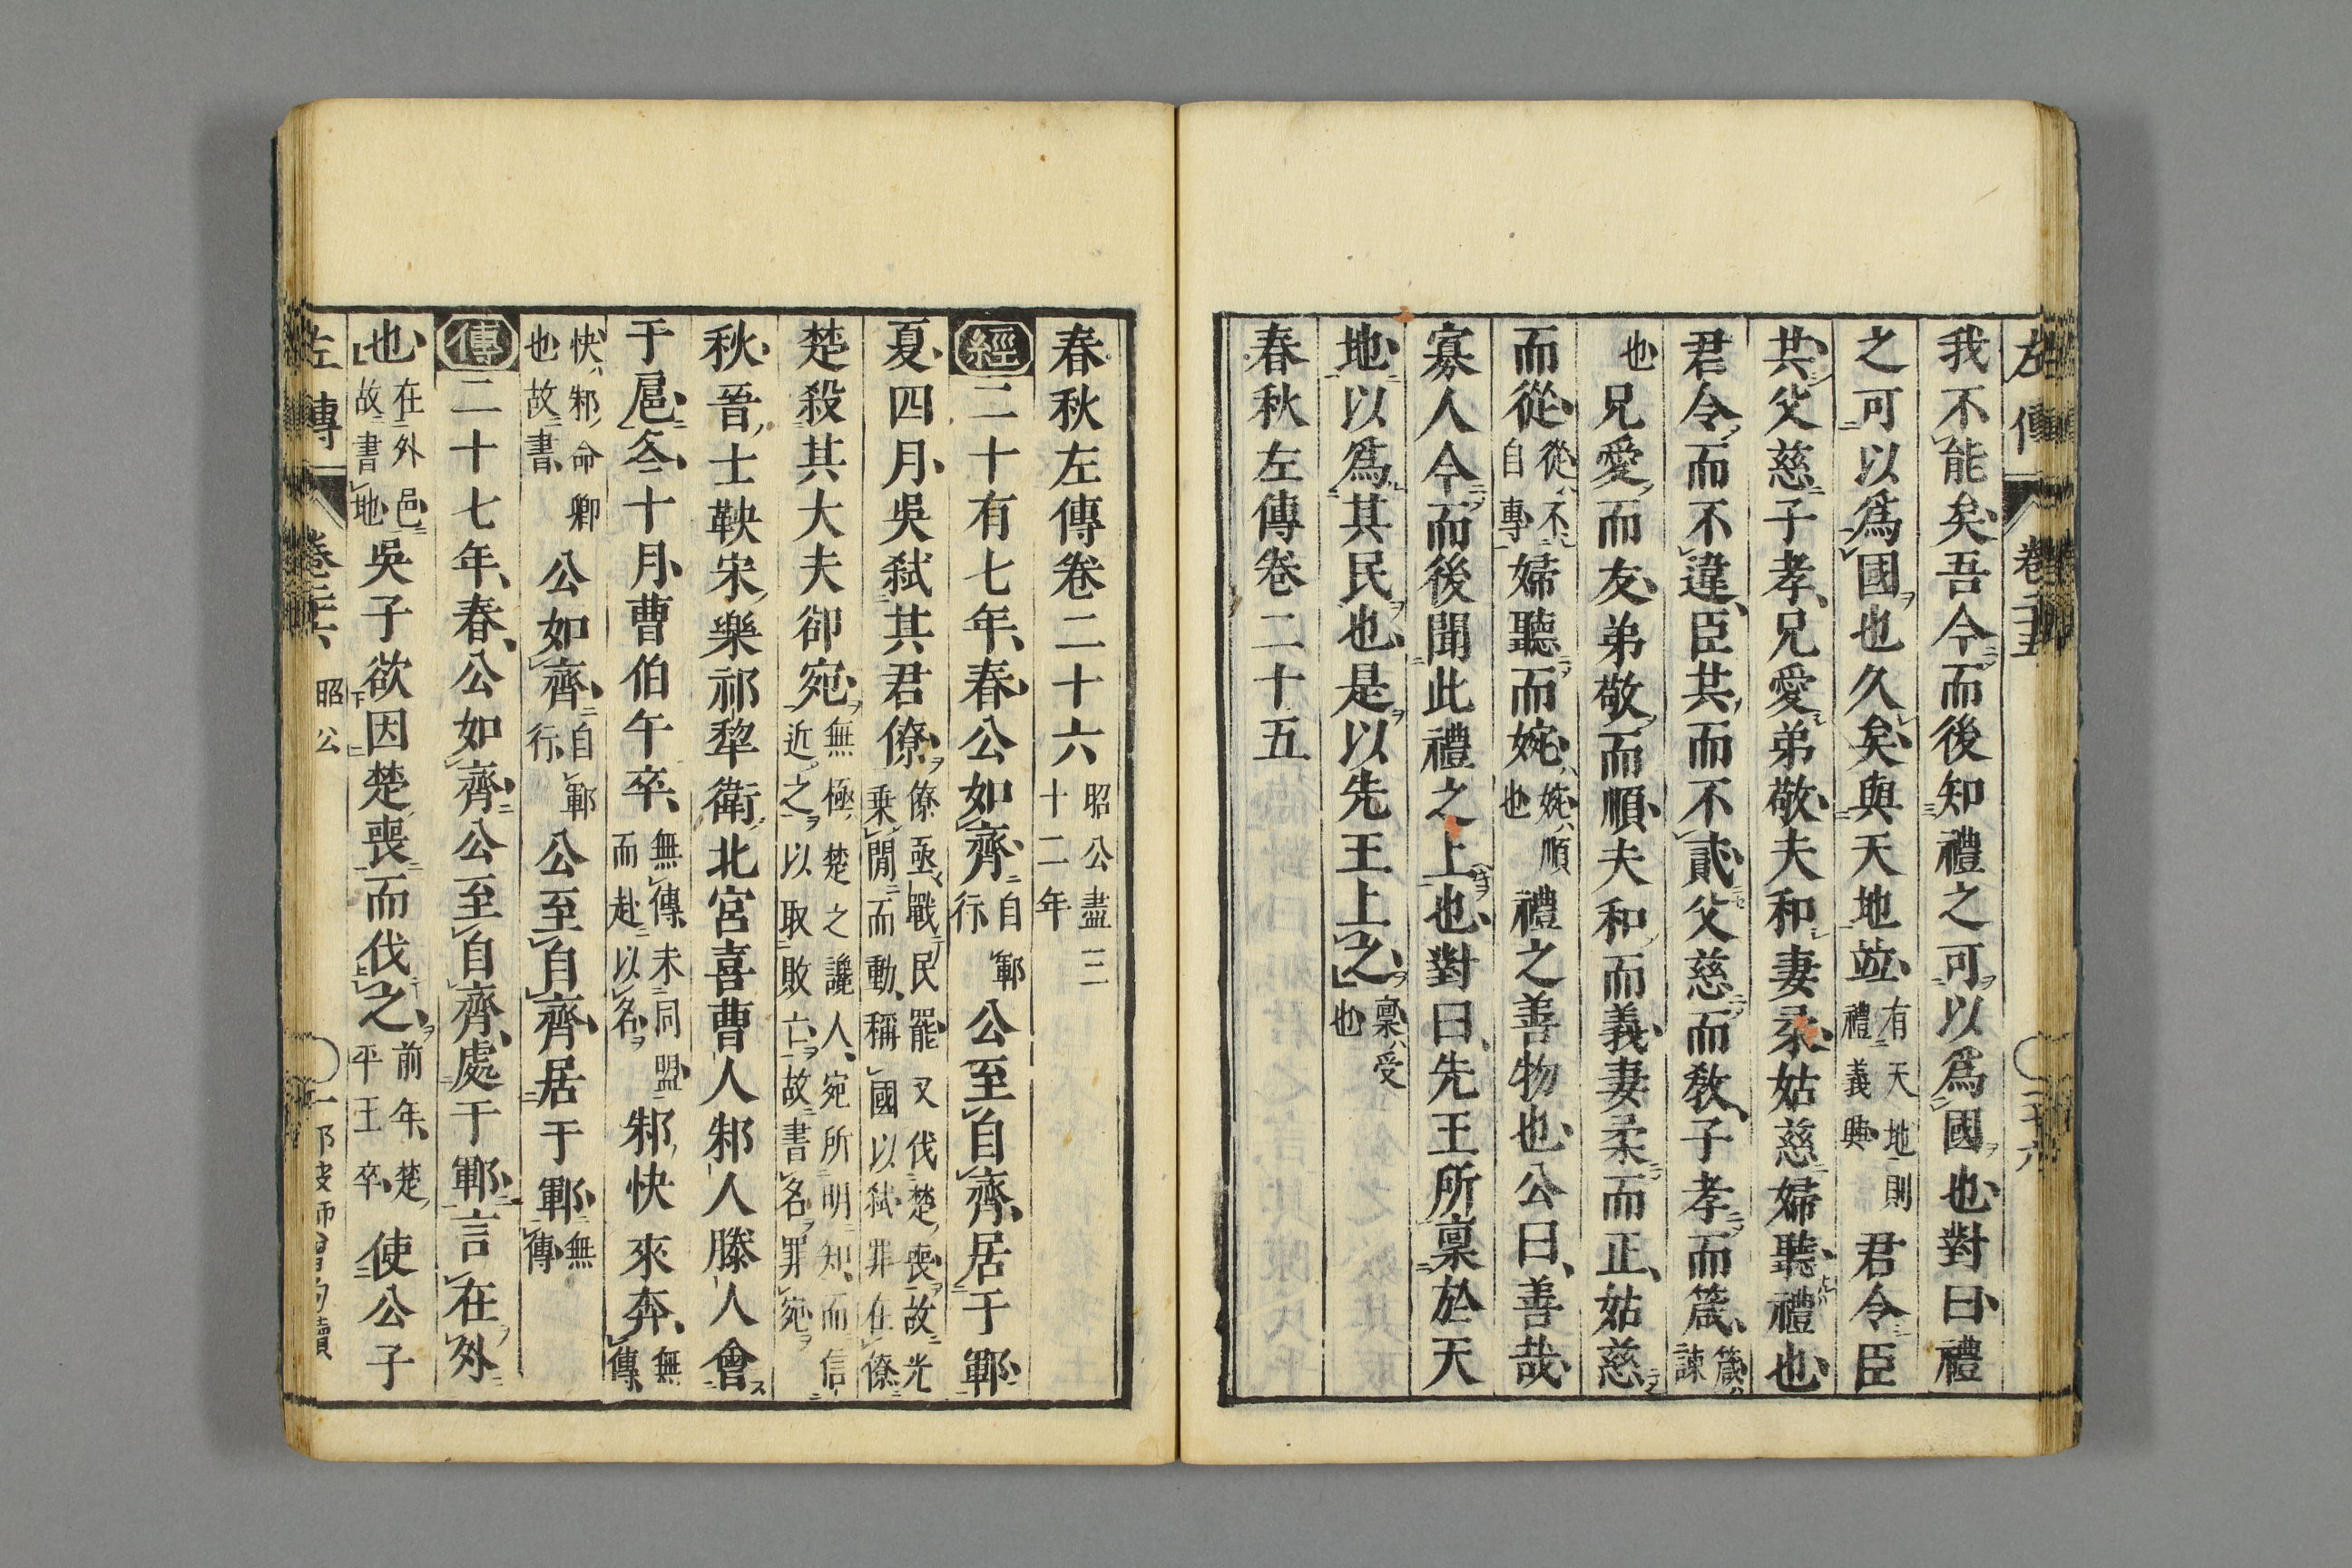 左傳 卷二十五 二十六
我不能矣吾今而後知禮之可以爲國也對曰禮
之可以爲國也久矣與天地並有天地則禮義興君令臣
共父慈子孝兄愛弟敬夫和妻柔姑慈婦聽禮也
君令而不違臣共而不貳父慈而教子孝而箴箴ハ諫
也兄愛而友弟敬而順夫和而義妻柔而正姑慈
而從從ハ不自專婦聽而婉婉ハ順也禮之善物也公曰善哉
寡人今而後聞此禮之上也對曰先王所稟於天
地以爲其民也是以先王上之稟ハ受也
春秋左傳卷二十五
春秋左傳卷二十六昭公盡三十二年
經二十有七年春公如齊自鄆行公至自齊居于鄆
夏四月吳弑其君僚僚亟戰民罷又伐楚喪故光乗閒而動稱國以弑罪在僚
楚殺其大夫郤宛無極楚之讒人宛所明知而信近之以取敗亡故書名罪宛
秋晉士鞅宋樂祁犂衛北宮喜曹人邾人滕人會
于扈冬十月曹伯午卒無傳未同盟而赴以名邾快來奔無傳
快ハ邾命卿也故書公如齊自鄆行公至自齊居于鄆無傳
傳二十七年春公如齊公至自齊處于鄆言在外
也在外邑故書地吳子欲因楚喪而伐之前年楚平王卒使公子
左傳 卷二十六 昭公 一 那波師曾句讀